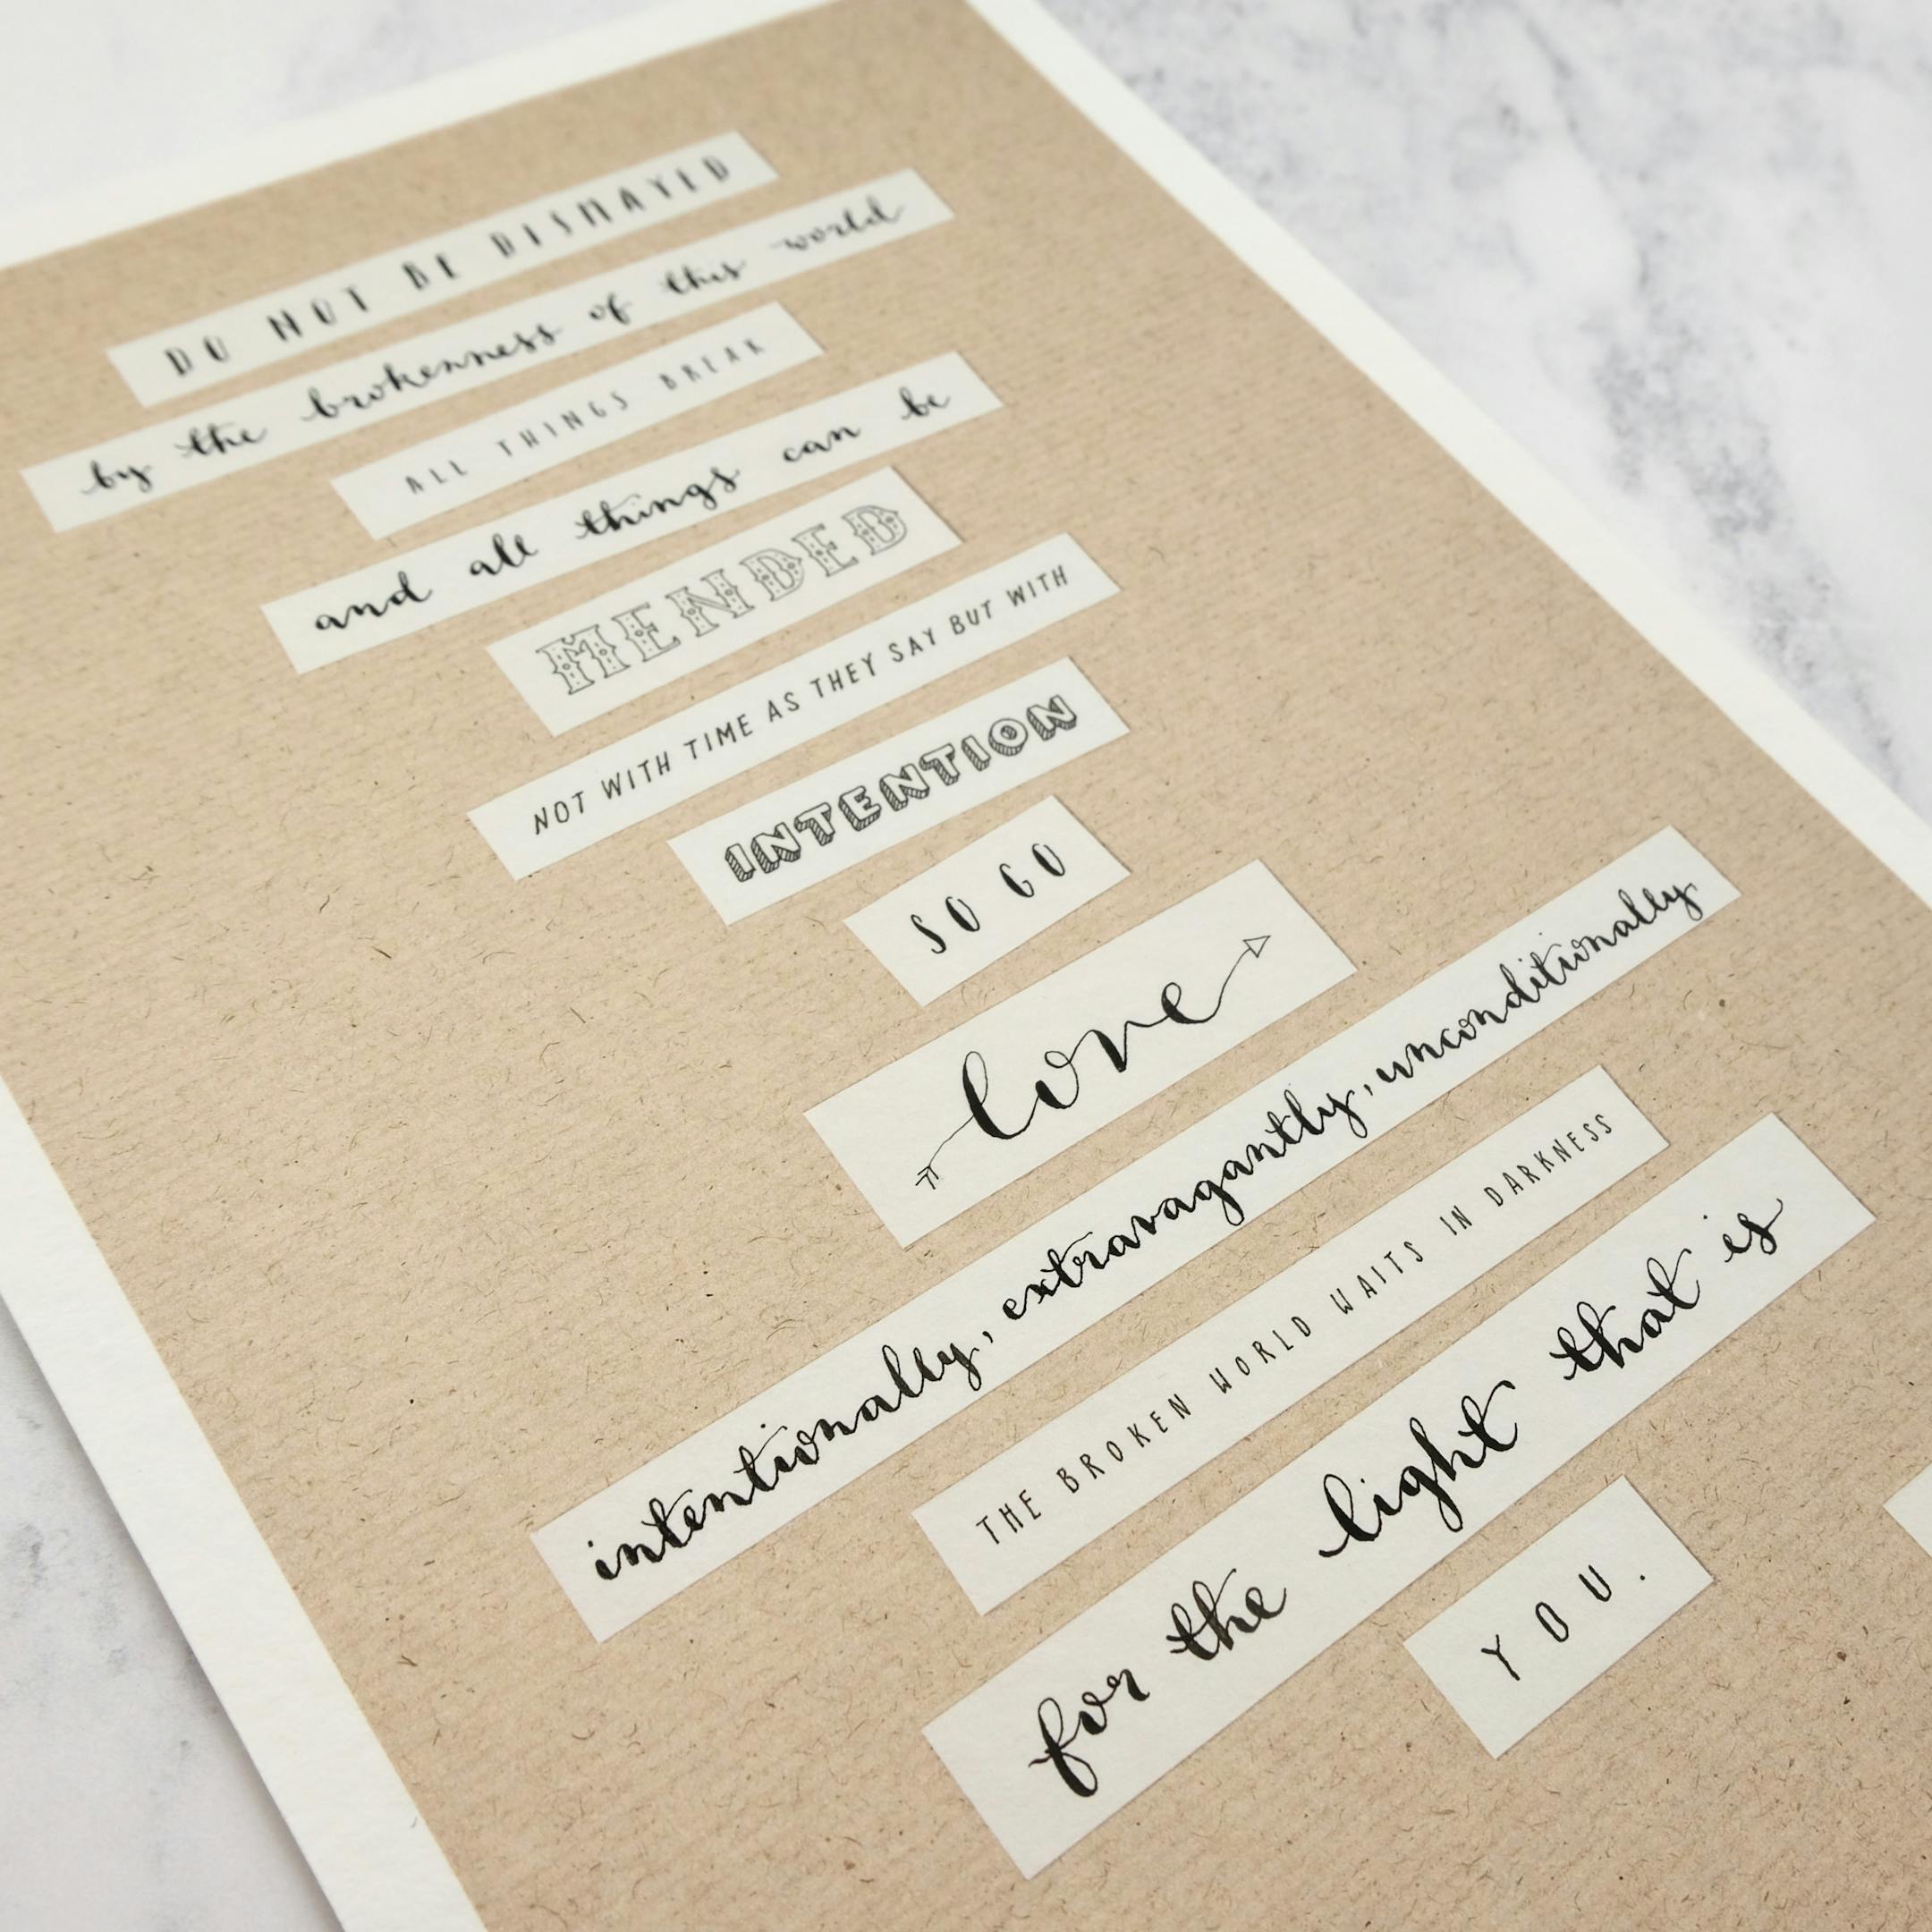 DO NOT BE DISMAYED
by the brokenness of this world
ALL THINGS BREAK
and all things can be
MENDED
NOT WITH TIME AS THEY SAY BUT WITH
INTENTION
SO GO
love
intentionally, extravagantly, unconditionally
THE BROKEN WORLD WAITS IN DARKNESS
for the light that is
YOU.